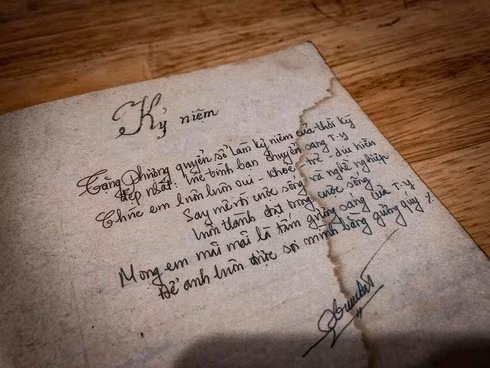 Kỷ niệm
Tặng Phùng quyển sổ làm kỷ niệm của thời kỳ
đẹp nhất: hè bình bạn chuyển sang T.y
Chúc em luôn luôn vui - khỏe - trẻ - dịu hiền
Say mê với cuộc sống và nghề nghiệp
luôn thành đạt trong cuộc sống
Mong em mãi mãi là tấm gương sáng của T.y
Để anh luôn được soi mình bằng gương quý